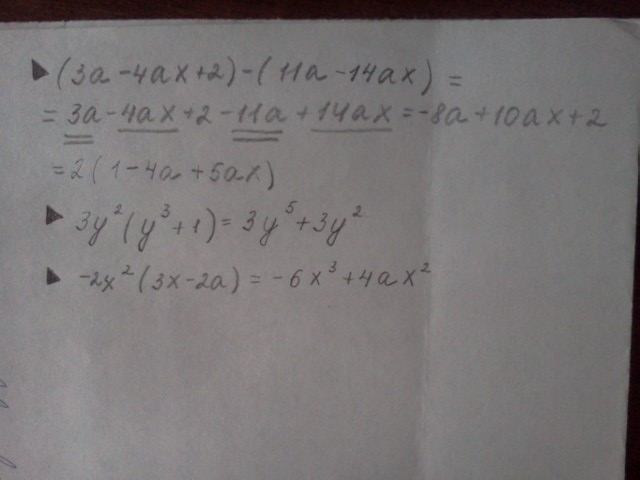 ▶ (3a - 4ax + 2) - (11a - 14ax) =
= 3a - 4ax + 2 - 11a + 14ax = -8a + 10ax + 2
= 2(1 - 4a + 5ax)
▶ 3y²(y³ + 1) = 3y⁵ + 3y²
▶ -2x²(3x - 2a) = -6x³ + 4ax²